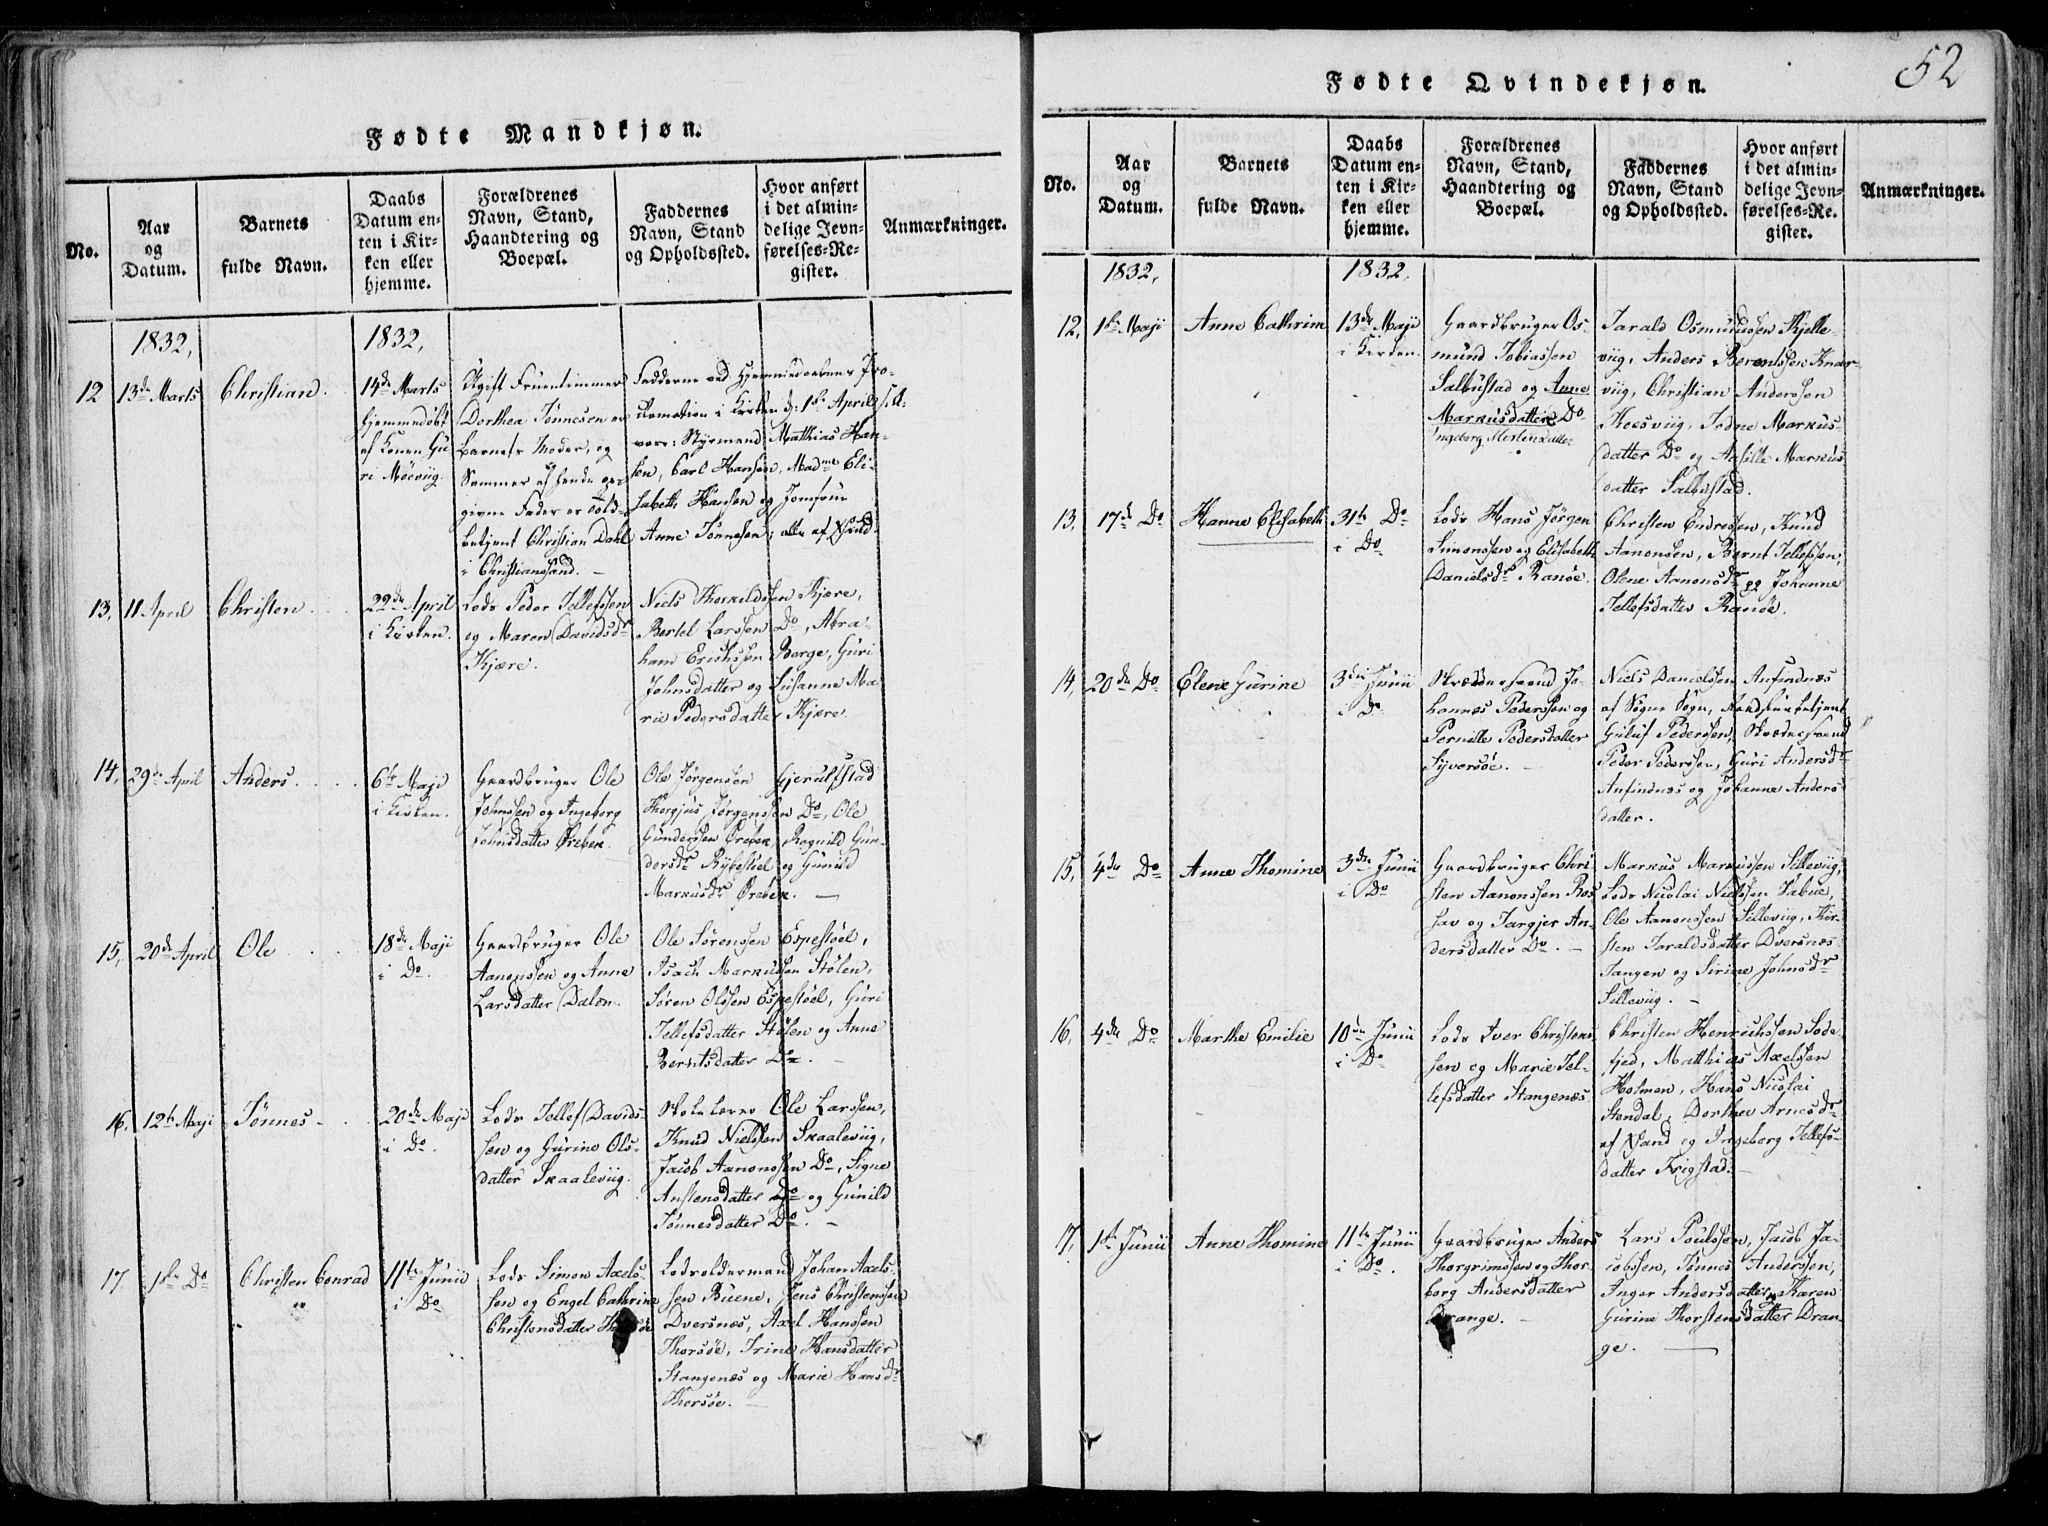 Fødte Mandkjøn.
No.
Aar
og
Datum.
Barnets
fulde Navn.
Daabs
Datum en-
ten i Kir-
ken eller
hjemme.
Forældrenes
Navn, Stand,
Haandtering og
Boepæl.
Faddernes
Navn, Stand
og Opholdssted.
Hvor anført
i det almin-
delige Jevn-
førelses-Re-
gister.
Anmærkninger.
1832,
1832,
12
13de Marts
Christian
14de Marts
hjemmedøbt
af Konen Gu
ri Møevig.
Ugift Fruentimmer
Dorthea Tønnesen er
Barnets Moder, og
Sammes af hende op
givne Fader er Told-
betjent Christian Dahl
i Christianssand.
Fadderne ved Hjemmedaabens Pro-
clamation i Kirken d: 1ste April
vare: Styrmand Matthias Han-
sen, Carl Hansen, Madme Eli-
sabeth Hansen og Jomfrue
Anne Tønnesen; alle af Xsand
13,
11 April
Christen
22de April
i Kirken.
Lods Peder Tellefssen
og Maren Davidsdr
Kjære.
Niels Thorkildssen Kjære,
Bertel Larssen Do, Abra-
ham Erichssen Borge, Guri
Johnsdatter og Susanne Ma
rie Pedersdatter Kjære.
14,
29de April
Anders
6te Maji
i Kirken.
Gaardbruger Ole
Johnssen og Ingeborg
Johnsdatter Ørebek.
Ole Jørgensen Gjerulfstad
Thorgjus Jørgenssen Do, Ole
Gunderssen Ørebek, Ragnild Gun-
dersdr Rybestøel og Gunild
Markusdr Ørebek.
15,
20de April
Ole
18de Maji
i Do.
Gaardbruger Ole
Aanonssen og Anne
Larsdatter Dalen.
Ole Sørenssen Espestøel,
Isach Markussen Stølen,
Søren Olssen Espestøel, Guri
Tellefsdatter Stølen og Anne
Berntsdatter Do.
16,
12te Maji
Tønnes
20de Maji
i Do.
Lods Tellef Davids-
sen og Gurine Ols-
datter Skaalevig.
Skolelærer Ole Larssen,
Knud Nielssen Skaalevig,
Jacob Aanonssen Do, Signe
Anstensdatter Do og Gunild
Tønnesdatter Do.
17.
1ste Do
Christen Conrad
11te Junii
i Do
Lods Simon Axels-
sen og Engel Cathrine
Christensdatter
Lodsoldermand Johan Axels-
sen Buene, Jens Christenssen
Dversnes, Axel Hanssen
Thorsøe, Trine Hansdatter
Stangenæs og Marie Hansdr
Thorsøe.
52
Fødte Qvindekjøn.
No.
Aar
og
Datum.
Barnets
fulde Navn.
Daabs
Datum en-
ten i Kir-
ken eller
hjemme.
Forældrenes
Navn, Stand,
Haandtering og
Boepæl.
Faddernes
Navn, Stand
og Opholdssted.
Hvor anført
i det almin-
delige Jevn-
førelses-Re-
gister.
Anmærkninger.
1832,
1832.
12,
1ste Maji
Anne Cathrine
13de Maji
i Kirken.
Gaardbruger Os-
mund Tobiassen
Salbustad og Anne
Markusdatter Do
Ingeborg Mortensdatter
Tarald Osmundssen Kjelle-
viig, Anders Berentssen Knar-
viig, Christian Anderssen
Koesviig, Todne Markus-
datter Do og Aasille Markus
datter Salbustad.
13,
17de Do
Hanne Elisabeth
31te Do
i Do
Lods Hans Jørgen
Simonssen og Elisabeth
Danielsdr Randøe.
Christen Endressen, Knud
Aanonsen, Bernt Tellefssen,
Olene Aanonsdr og Johanne
Tellefsdatter Randøe.
14,
20de Do
Elene Gurine
3die Junii
i Do
Skræddersvend Jo-
hannes Pederssen og
Pernille Pedersdatter
Syversøe.
Niels Danielssen Aufindnæs
af Søgne Sogn,
Guluf Pederssen, Skrædersvend
Peder Pederssen, Guri Andersdr
Aufindnæs og Johanne Anders
datter.
15,
4de Do
Anne Thomine
3die Junii
i Do
Gaardbruger Chri
sten Aanonssen Ros
sav og Targjer An-
dersdatter Do.
Markus Markussen Sillevig,
Lods Nicolai Nielssen Fabue,
Ole Aanonssen Sillevig, Kir-
sten Taraldsdatter Dversnes-
Tangen og Sirine Johnsdr
Sillevig.
16,
4de Do
Marthe Emilie
10de Junii
i Do
Lods Iver Christens-
sen og Marie Tel-
lefsdatter Stangenæs.
Christen Henrichssen Sode-
fjed, Matthias Axelssen
Holmen, Hans Nicolai
Stendal, Dorthe Arnesdr
af Xsand og Ingeborg Tellefs-
datter Frigstad.
17,
1ste Junii
Anne Thomine
11te Junii
i Do.
Gaardbruger Anders
Thorgrimssen og Thor-
borg Andersdatter
Drange.
Lars Poulssen, Jacob Ja-
cobssen, Tønnes Anderssen,
Inger Andersdatter, Karen
Gurine Thorstensdatter Dran-
ge.